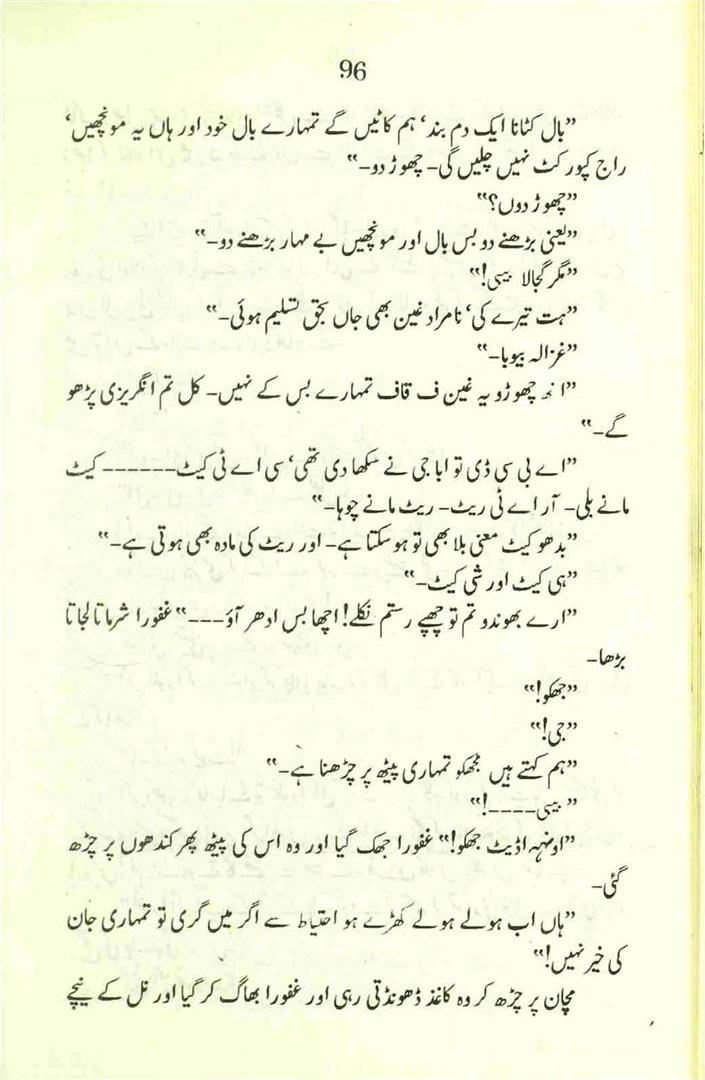 96
”بال کٹانا ایک دم بند‘ ہم کاٹیں گے تمہارے بال خود اور ہاں یہ مونچھیں‘
راج کپور کٹ نہیں چلیں گی۔ چھوڑ دو۔“
”چھوڑ دوں؟“
”یعنی بڑھنے دو بس بال اور مونچھیں بے مہار بڑھنے دو۔“
”مگر گجالا بیبی!“
”ہت تیرے کی‘ نامراد غین بھی جاں بحق تسلیم ہوئی۔“
”غزالہ بیوبا۔“
”انھ چھوڑو یہ غین ف قاف تمہارے بس کے نہیں۔ کل تم انگریزی پڑھو
گے۔“
”اے بی سی ڈی تو اباجی نے سکھا دی تھی‘ سی اے ٹی کیٹ------ کیٹ
مانے بلی۔ آر اے ٹی ریٹ۔ ریٹ مانے چوہا۔“
”بدھو کیٹ معنی بلا بھی تو ہو سکتا ہے۔ اور ریٹ کی مادہ بھی ہوتی ہے۔“
”ہی کیٹ اور شی کیٹ۔“
”ارے بھوندو تم تو چھپے رستم نکلے! اچھا بس ادھر آؤ---“ غفورا شرماتا لجاتا
بڑھا۔
”جھکو!“
”جی!“
”ہم کہتے ہیں جھکو تمہاری پیٹھ پر چڑھنا ہے۔“
”بیبی----!“
”اونہہ اڈیٹ جھکو!“ غفورا جھک گیا اور وہ اس کی پیٹھ پھر کندھوں پر چڑھ
گئی۔
”ہاں اب ہولے ہولے کھڑے ہو احتیاط سے اگر میں گری تو تمہاری جان
کی خیر نہیں!“
مچان پر چڑھ کر وہ کاغذ ڈھونڈتی رہی اور غفورا بھاگ کر گیا اور نل کے نیچے